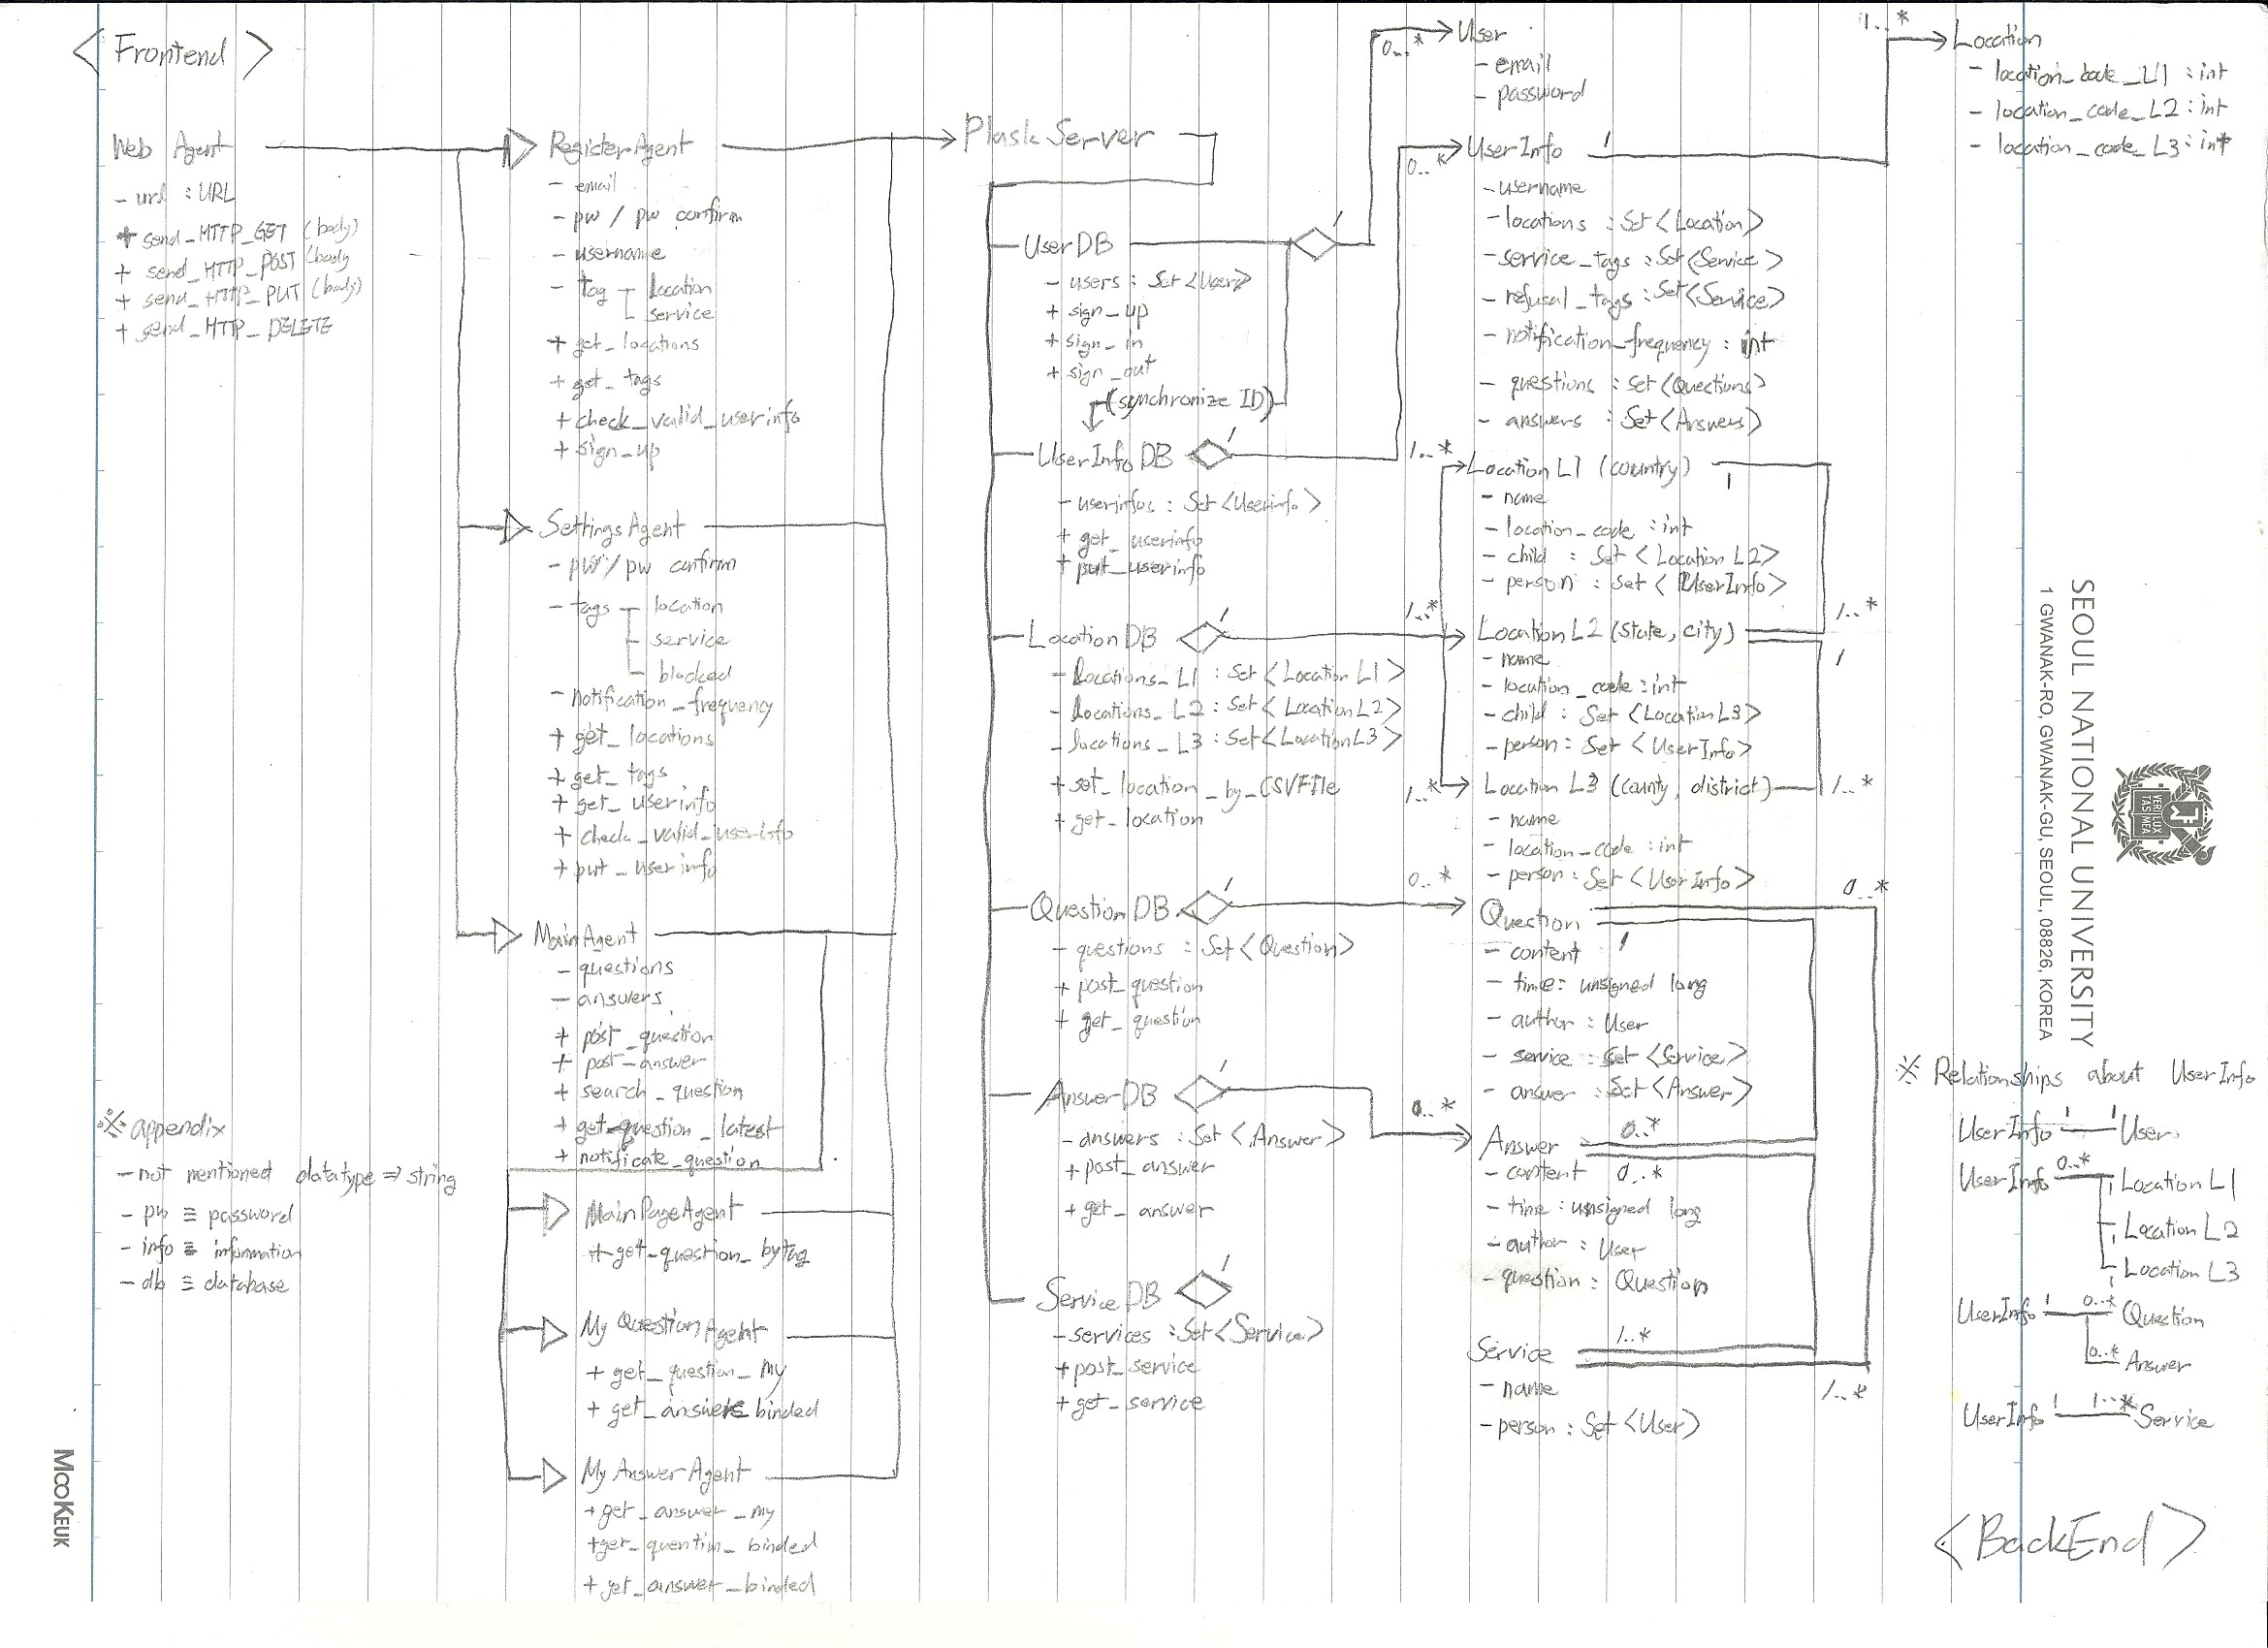 < Frontend >
Web Agent
- url : URL
+ send_HTTP_GET (body)
+ send_HTTP_POST (body
+ send_HTTP_PUT (body)
+ send_HTTP_DELETE
※ appendix
- not mentioned datatype ⇒ string
- pw ≡ password
- info ≡ information
- db ≡ database
RegisterAgent
- email
- pw / pw confirm
- username
- tag
Location
service
+ get_locations
+ get_tags
+ check_valid_userinfo
+ sign_up
SettingsAgent
- pw / pw confirm
- tags
location
service
blocked
- notification_frequency
+ get_locations
+ get_tags
+ get_userinfo
+ check_valid_userinfo
+ put_userinfo
MainAgent
- questions
- answers
+ post_question
+ post_answer
+ search_question
+ get_question_latest
+ notificate_question
MainPageAgent
+ get_question_bytag
My QuestionAgent
+ get_question_my
+ get_answers binded
My AnswerAgent
+ get_answer_my
+ get_quention_binded
+ get_answer_binded
Flask Server
UserDB
1
- users : Set <User>
+ sign_up
+ sign_in
+ sign_out
(synchronize ID)
UserInfoDB
1
- userinfos : Set <Userinfo>
+ get_userinfo
+ put_userinfo
LocationDB
1
- locations_L1 : Set <Location L1>
- locations_L2 : Set <Location L2>
- locations_L3 : Set <Location L3>
+ set_location_by_CSVFile
+ get_location
QuestionDB
1
- questions : Set <Question>
+ post_question
+ get_question
AnswerDB
1
- answers : Set <Answer>
+ post_answer
+ get_answer
ServiceDB
1
- services : Set <Service>
+ post_service
+ get_service
0..*
User
- email
- password
0..*
UserInfo
1
- username
- locations : Set <Location>
- service_tags : Set <Service>
- refusal_tags : Set <Service>
- notification_frequency : int
- questions : Set <Questions>
- answers : Set <Answers>
1..*
Location L1 (country)
1
- name
- location_code : int
- child : Set <Location L2>
- person : Set <UserInfo>
1..*
Location L2 (state, city)
1..*
1
- name
- location_code : int
- child : Set <Location L3>
- person : Set <UserInfo>
1..*
Location L3 (county, district)
1..*
- name
- location_code : int
- person : Set <UserInfo>
0..*
Question
0..*
1
- content
- time : unsigned long
- author : User
- service : Set <Service>
- answer : Set <Answer>
0..*
Answer
0..*
- content
0..*
- time : unsigned long
- author : User
- question : Question
Service
1..*
1..*
- name
- person : Set <User>
1..*
Location
- location_code_L1 : int
- location_code_L2 : int
- location_code_L3 : int
※ Relationships about UserInfo
UserInfo 1 1 User
UserInfo 0..* 1 Location L1
1 Location L2
1 Location L3
UserInfo 1 0..* Question
0..* Answer
UserInfo 1 1..* Service
< BackEnd >
SEOUL NATIONAL UNIVERSITY
1 GWANAK-RO, GWANAK-GU, SEOUL, 08826, KOREA
VERI LUX TAS MEA
MOOKEUK